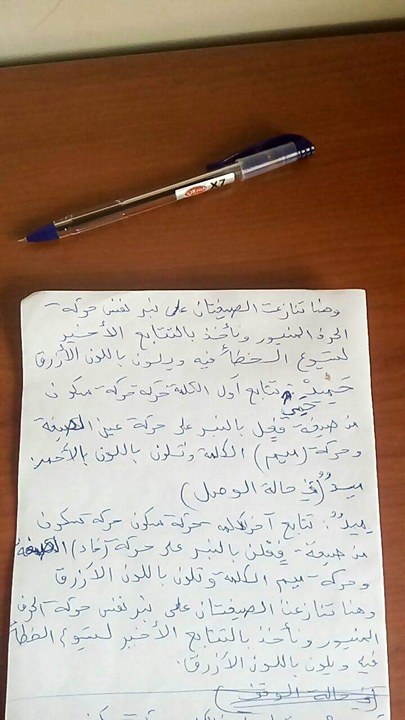 X7
وهنا تنازعت الصيغتان على نبر نفس حركة
الحرف المنبور ونأخذ بالتتابع الأخير
لشيوع الخطأ فيه ويلون باللون الأزرق
تتابع أول الكلمة حركة حركة سكون
من صيغة فعل بالنبر على حركة عين الصيغة
وحركة (ميم) الكلمة وتلون باللون الأحمر.
ميدٌ (في حالة الوصل)
ميدٌ: تتابع آخر الكلمة حركة سكون حركة سكون
من صيغة فعلن بالنبر على حركة (فاء) الصيغة
وحركة ميم الكلمة وتلون باللون الأزرق
وهنا تنازعت الصيغتان على نبر نفس حركة الحرف
المنبور ونأخذ بالتتابع الأخير لشيوع الخطأ
فيه ويلون باللون الأزرق.
(في حالة الوقف)